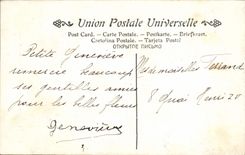 Union Postale Universelle
Post Card. – Carte Postale. – Postkarte. – Briefkaart.
Cartolina Postale – Tarjeta Postal
ОТКРЫТОЕ ПИСЬМО
Petite Geneviève
remercie beaucoup
ses gentilles amies
pour les belles fleurs
Geneviève
Mesdemoiselles
8 Quai Henri